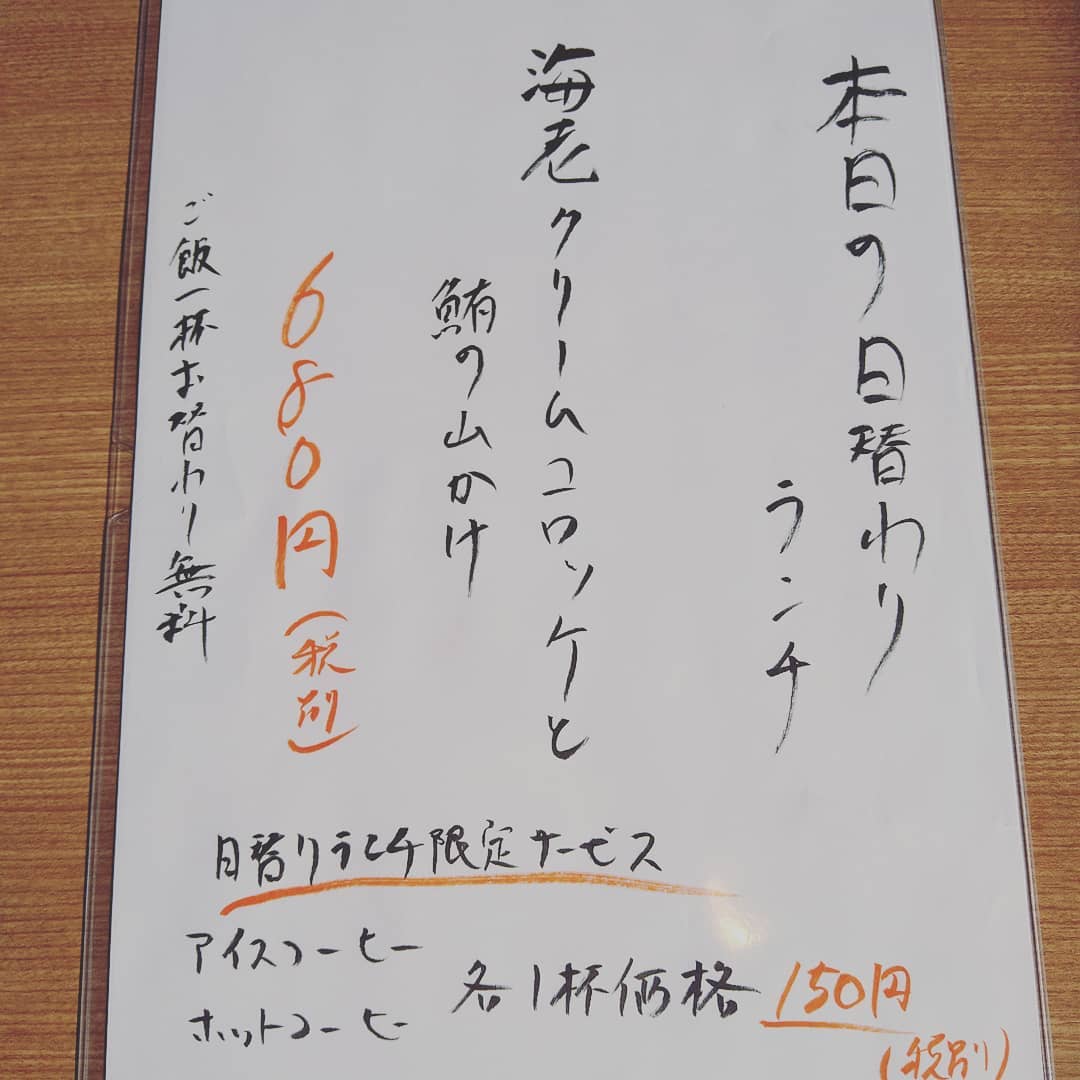 本日の日替わり
ランチ
海老クリームコロッケと
鮪の山かけ
680円(税別)
ご飯一杯お替わり無料
日替りランチ限定サービス
アイスコーヒー
ホットコーヒー
各1杯価格 150円
(税別)